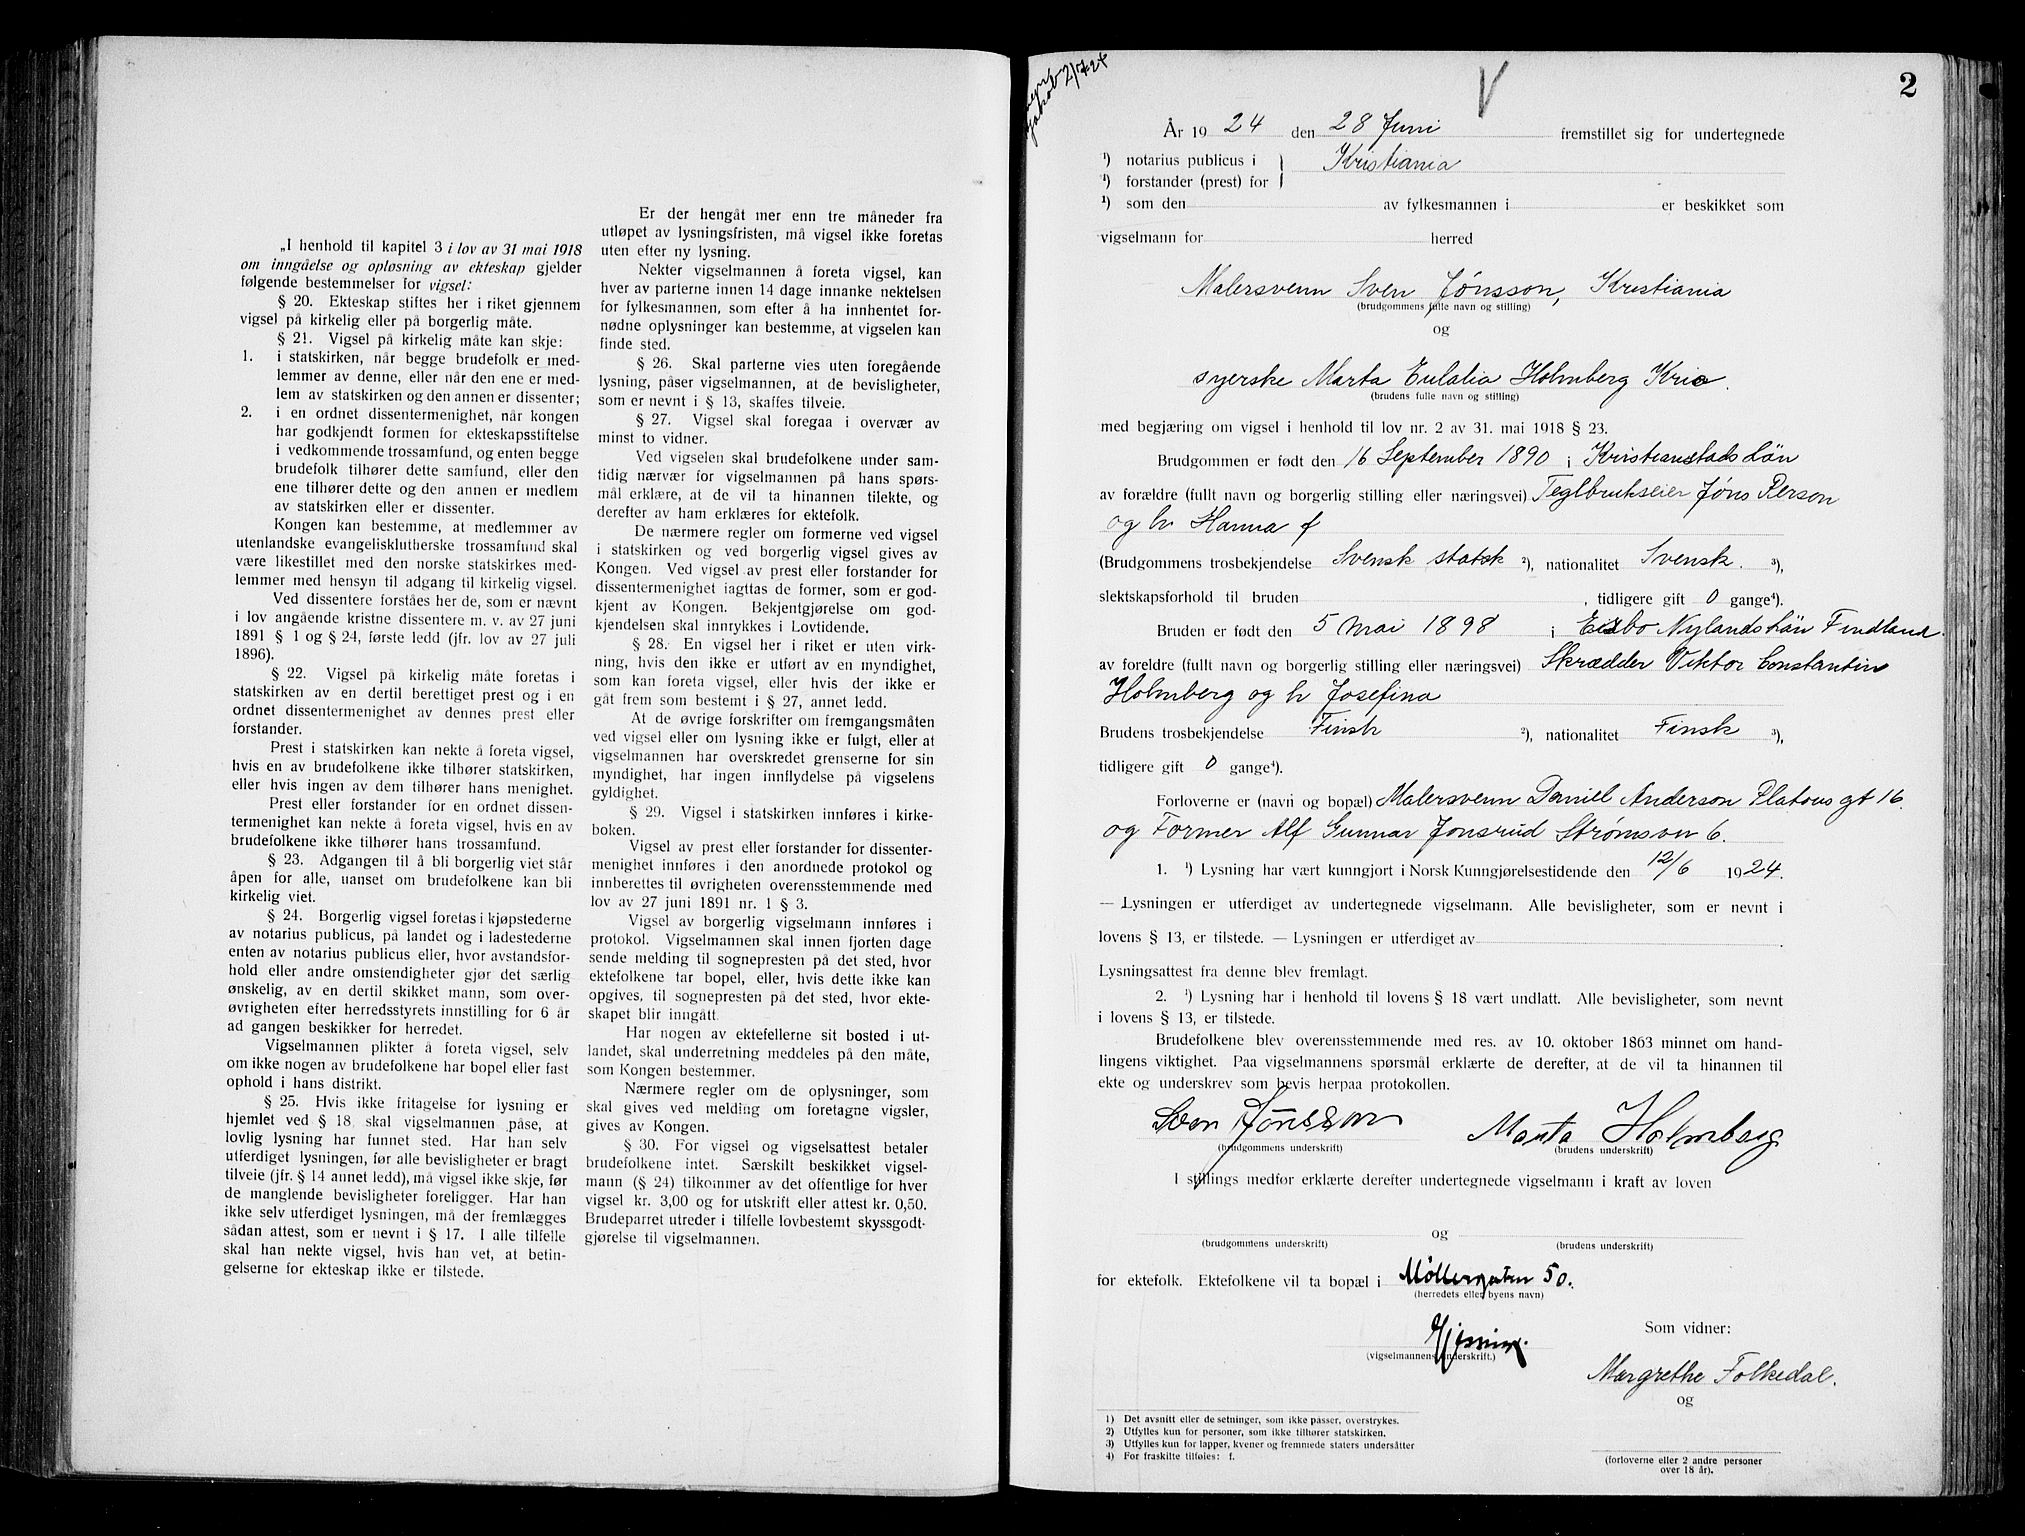 „I henhold til kapitel 3 i lov av 31 mai 1918
om inngåelse og opløsning av ekteskap gjelder
følgende bestemmelser for vigsel:
§ 20. Ekteskap stiftes her i riket gjennem
vigsel på kirkelig eller på borgerlig måte.
§ 21. Vigsel på kirkelig måte kan skje:
1. i statskirken, når begge brudefolk er med-
lemmer av denne, eller når den ene er med-
lem av statskirken og den annen er dissenter;
2. i en ordnet dissentermenighet, når kongen
har godkjendt formen for ekteskapsstiftelse
i vedkommende trossamfund, og enten begge
brudefolk tilhører dette samfund, eller den
ene tilhører dette og den annen er medlem
av statskirken eller er dissenter.
Kongen kan bestemme, at medlemmer av
utenlandske evangelisklutherske trossamfund skal
være likestillet med den norske statskirkes med-
lemmer med hensyn til adgang til kirkelig vigsel.
Ved dissentere forståes her de, som er nævnt
i lov angående kristne dissentere m. v. av 27 juni
1891 § 1 og § 24, første ledd (jfr. lov av 27 juli
1896).
§ 22. Vigsel på kirkelig måte foretas i
statskirken av en dertil berettiget prest og i en
ordnet dissentermenighet av dennes prest eller
forstander.
Prest i statskirken kan nekte å foreta vigsel,
hvis en av brudefolkene ikke tilhører statskirken,
eller hvis ingen av dem tilhører hans menighet.
Prest eller forstander for en ordnet dissen-
termenighet kan nekte å foreta vigsel, hvis en av
brudefolkene ikke tilhører hans trossamfund.
§ 23. Adgangen til å bli borgerlig viet står
åpen for alle, uanset om brudefolkene kan bli
kirkelig viet.
§ 24. Borgerlig vigsel foretas i kjøpstederne
av notarius publicus, på landet og i ladestederne
enten av notarius publicus eller, hvor avstandsfor-
hold eller andre omstendigheter gjør det særlig
ønskelig, av en dertil skikket mann, som over-
øvrigheten efter herredsstyrets innstilling for 6 år
ad gangen beskikker for herredet.
Vigselmannen plikter å foreta vigsel, selv
om ikke nogen av brudefolkene har bopel eller fast
ophold i hans distrikt.
§ 25. Hvis ikke fritagelse for lysning er
hjemlet ved § 18, skal vigselmannen påse, at
lovlig lysning har funnet sted. Har han selv
utferdiget lysningen, før alle bevisligheter er bragt
tilveie (jfr. § 14 annet ledd), må vigsel ikke skje, før
de manglende bevisligheter foreligger. Har han
ikke selv utferdiget lysningen, må der fremlægges
sådan attest, som er nevnt i § 17. I alle tilfelle
skal han nekte vigsel, hvis han vet, at betin-
gelserne for ekteskap ikke er tilstede.
Er der hengåt mer enn tre måneder fra
utløpet av lysningsfristen, må vigsel ikke foretas
uten efter ny lysning.
Nekter vigselmannen å foreta vigsel, kan
hver av parterne innen 14 dage innanke nektelsen
for fylkesmannen, som efter å ha innhentet for-
nødne oplysninger kan bestemme, at vigselen kan
finde sted.
§ 26. Skal parterne vies uten foregående
lysning, påser vigselmannen, at de bevisligheter,
som er nevnt i § 13, skaffes tilveie.
§ 27. Vigsel skal foregaa i overvær av
minst to vidner.
Ved vigselen skal brudefolkene under sam-
tidig nærvær for vigselmannen på hans spørs-
mål erklære, at de vil ta hinannen tilekte, og
derefter av ham erklæres for ektefolk.
De nærmere regler om formerne ved vigsel
i statskirken og ved borgerlig vigsel gives av
Kongen. Ved vigsel av prest eller forstander for
dissentermenighet iagttas de former, som er god-
kjent av Kongen. Bekjentgjørelse om god-
kjendelsen skal innrykkes i Lovtidende.
§ 28. En vigsel her i riket er uten virk-
ning, hvis den ikke er utført av en myndighet,
som kan foreta vigsel, eller hvis der ikke er
gåt frem som bestemt i § 27, annet ledd.
At de øvrige forskrifter om fremgangsmåten
ved vigsel eller om lysning ikke er fulgt, eller at
vigselmannen har overskredet grenserne for sin
myndighet, har ingen innflydelse på vigselens
gyldighet.
§ 29. Vigsel i statskirken innføres i kirke-
boken.
Vigsel av prest eller forstander for dissenter-
menighet innføres i den anordnede protokol og
innberettes til øvrigheten overensstemmende med
lov av 27 juni 1891 nr. 1 § 3.
Vigsel av borgerlig vigselmann innføres i
protokol. Vigselmannen skal innen fjorten dage
sende melding til sognepresten på det sted, hvor
ektefolkene tar bopel, eller, hvis dette ikke kan
opgives, til sognepresten på det sted, hvor ekte-
skapet blir inngått.
Har nogen av ektefellerne sit bosted i ut-
landet, skal underretning meddeles på den måte,
som Kongen bestemmer.
Nærmere regler om de oplysninger, som
skal gives ved melding om foretagne vigsler,
gives av Kongen.
§ 30. For vigsel og vigselsattest betaler
brudefolkene intet. Særskilt beskikket vigsel-
mann (§ 24) tilkommer av det offentlige for hver
vigsel kr. 3,00 og for utskrift eller attest kr. 0,50.
Brudeparret utreder i tilfelle lovbestemt skyssgodt-
gjørelse til vigselmannen.
Jakob 2/7 24
V
2
År 1924 den 28 Juni fremstillet sig for undertegnede
1) notarius publicus i } Kristiania
1) forstander (prest) for
1) som den av fylkesmannen i er beskikket som
vigselmann for herred
Malersvenn Sven Jønsson, Kristiania
(brudgommens fulle navn og stilling)
og
syerske Marta Eulalia Holmberg Kria.
(brudens fulle navn og stilling)
med begjæring om vigsel i henhold til lov nr. 2 av 31. mai 1918 § 23.
Brudgommen er født den 16 September 1890 i Kristianstads Län
av forældre (fullt navn og borgerlig stilling eller næringsvei) Teglbrukseier Jøns Person
og h Hanna f
(Brudgommens trosbekjendelse Svensk statsk 2), nationalitet Svensk. 3),
slektskapsforhold til bruden , tidligere gift 0 gange4).
Bruden er født den 5 mai 1898 i Esbo Nylands Län Findland
av foreldre (fullt navn og borgerlig stilling eller næringsvei) Skrædder Viktor Constantin
Holmberg og h Josefina
Brudens trosbekjendelse Finsk 2), nationalitet Finsk 3),
tidligere gift 0 gange4).
Forloverne er (navn og bopæl) Malersvenn Daniel Anderson Platous gt 16
og Former Alf Gunnar Jonsrud Strømsvn 6.
1. 1) Lysning har vært kunngjort i Norsk Kunngjørelsestidende den 12/6 1924.
— Lysningen er utferdiget av undertegnede vigselmann. Alle bevisligheter, som er nevnt i
lovens § 13, er tilstede. — Lysningen er utferdiget av .
Lysningsattest fra denne blev fremlagt.
2. 1) Lysning har i henhold til lovens § 18 vært undlatt. Alle bevisligheter, som nevnt
i lovens § 13, er tilstede.
Brudefolkene blev overensstemmende med res. av 10. oktober 1863 minnet om hand-
lingens viktighet. Paa vigselmannens spørsmål erklærte de derefter, at de vil ta hinannen til
ekte og underskrev som bevis herpaa protokollen.
Sven Jönsson Marta Holmberg
(brudgommens underskrift) (brudens underskrift)
I stillings medfør erklærte derefter undertegnede vigselmann i kraft av loven
og
(brudgommens underskrift) (brudens underskrift)
for ektefolk. Ektefolkene vil ta bopæl i Møllergaten 50.
(herredets eller byens navn)
Som vidner:
(vigselmannens underskrift.)
Margrethe Folkedal.
og
1) Det avsnitt eller de setninger, som ikke passer, overstrykes.
2) Utfylles kun for personer, som ikke tilhører statskirken.
3) Utfylles kun for lapper, kvener og fremmede staters undersåtter
4) For fraskilte tilføies: f.
(forloverne eller 2 andre personer
over 18 år).